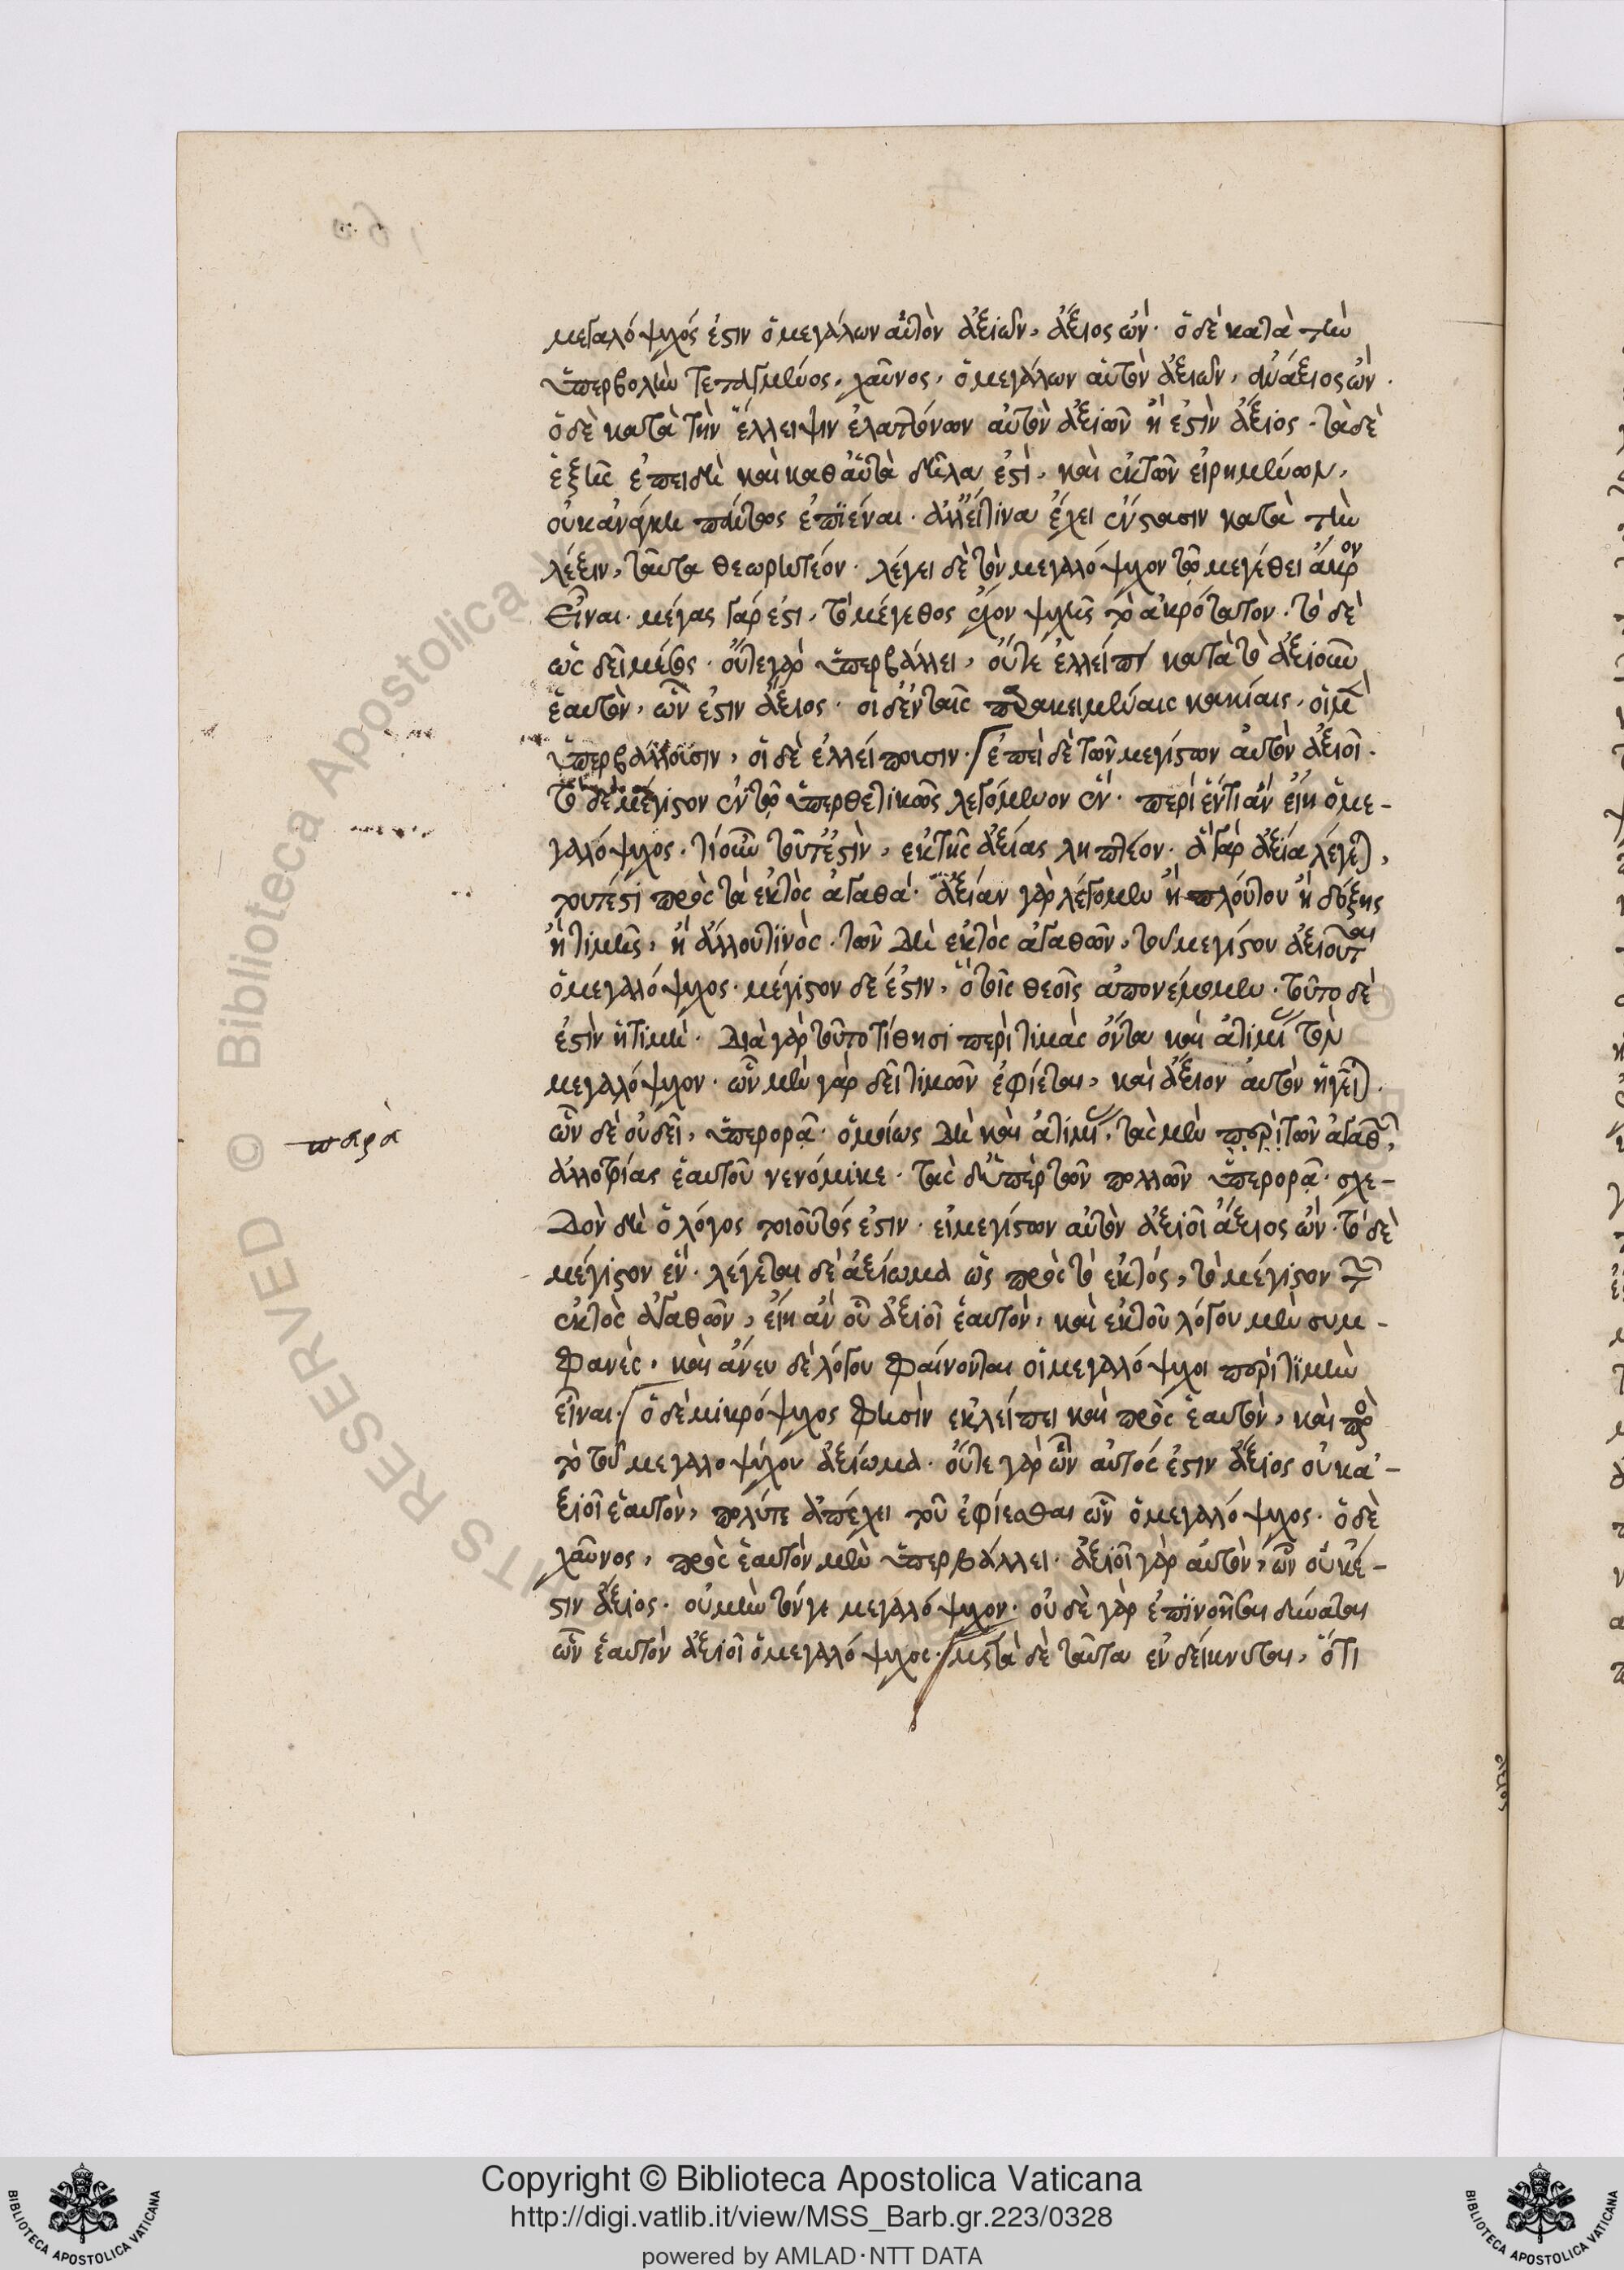 μεγαλόψυχός ἐστιν ὁ μεγάλων αὑτὸν ἀξιῶν, ἄξιος ὤν· ὁ δὲ κατὰ τὴν
ὑπερβολὴν τεταγμένος, χαῦνος, ὁ μεγάλων αὑτὸν ἀξιῶν, ἀνάξιος ὤν·
ὁ δὲ κατὰ τὴν ἔλλειψιν ἐλαττόνων αὑτὸν ἀξιῶν ἢ ἐστὶν ἄξιος· τὰ δὲ
ἑξῆς ἐπειδὴ καὶ καθ αὑτὰ δῆλα ἐστὶ, καὶ ἐκ τῶν εἰρημένων,
οὐκ ἀνάγκη πάντως ἐπϊέναι· ἀλλ εἴ τινα ἔχει ἔνστασιν κατὰ τὴν
λέξιν, ταῦτα θεωρητέον· λέγει δὲ τὸν μεγαλόψυχον τῷ μεγέθει ἄκρον
εἶναι· μέγας γάρ ἐστι, τὸ μέγεθος ἔχον ψυχῆς τὸ ἀκρότατον· τὸ δὲ
ὡς δεῖ μέσος· οὔτε γὰρ ὑπερβάλλει, οὔτε ἐλλείπει κατὰ τὸ ἀξιοῦν
ἑαυτὸν, ὧν ἐστιν ἄξιος· οἱ δ ἐν ταῖς παρακειμέναις κακίαις, οἱ μὲν
ὑπερβάλλουσιν, οἱ δὲ ἐλλείπουσιν· ἐπεὶ δὲ τῶν μεγίστων αὑτὸν ἀξιοῖ·
τὸ δὲ μέγιστον ἐν τῷ ὑπερθετικῶς λεγόμενον ἓν· περὶ ἕν τι ἂν εἴη ὁ με-
γαλόψυχος· τί οὖν τοῦτ ἐστὶν, ἐκ τῆς ἀξίας ληπτέον· ἡ γὰρ ἀξία λέγεται,
τουτέστι πρὸς τὰ ἐκτὸς ἀγαθά· ἀξίαν γὰρ λέγομεν ἢ πλούτου ἢ δόξης
ἢ τιμῆς, ἢ ἄλλου τϊνὸς· τῶν δὴ ἐκτὸς ἀγαθῶν, τοῦ μεγίστου ἀξιοῦται
ὁ μεγαλόψυχος· μέγιστον δέ ἐστιν, ὃ τοῖς θεοῖς ἀπονέμομεν· τοῦτο δὲ
ἐστὶν ἡ τιμὴ· διὰ γὰρ τοῦτο τίθησι περὶ τιμὰς ὄντα καὶ ἀτιμίας τὸν
μεγαλόψυχον· ὧν μὲν γὰρ δεῖ τιμῶν ἐφίεται, καὶ ἄξιον αὑτὸν ἡγεῖται·
ὧν δὲ οὐ δεῖ, ὑπερορᾷ· ὁμοίως δὴ καὶ ἀτιμίας, τὰς μὲν περὶ τῶν ἀγαθῶν,
παρὰ
ἀλλοτρίας ἑαυτοῦ νενόμικε· τὰς δ ὑπὲρ τῶν πολλῶν ὑπερορᾷ· σχε-
δὸν δὴ ὁ λόγος τοιοῦτός ἐστιν· εἰ μεγίστων αὑτὸν ἀξιοῖ ἄξιος ὤν· τὸ δὲ
μέγιστον ἕν· λέγεται δὲ ἀξίωμα ὡς πρὸς τὸ ἐκτός, τὸ μέγιστον τῶν
ἐκτὸς ἀγαθῶν, εἴη ἂν οὗ ἀξιοῖ ἑαυτὸν, καὶ ἐκ τοῦ λόγου μὲν συμ-
φανὲς, καὶ ἄνευ δὲ λόγου φαίνονται οἱ μεγαλόψυχοι περὶ τϊμὴν
εἶναι· ὁ δὲ μικρόψυχος φησὶν ἐκλείπει καὶ πρὸς ἑαυτὸν, καὶ πρὸς
τὸ τοῦ μεγαλοψύχου ἀξίωμα· οὔτε γὰρ ὧν αὐτός ἐστιν ἄξιος οὐκ ἀ-
ξιοῖ ἑαυτὸν, πολύ τε ἀπέχει τοῦ ἐφίεσθαι ὧν ὁ μεγαλόψυχος· ὁ δὲ
χαῦνος, πρὸς ἑαυτὸν μὲν ὑπερβάλλει· ἀξιοῖ γὰρ αὑτὸν, ὧν οὔκ ἐ-
στιν ἄξιος· οὐ μὴν τόν γε μεγαλόψυχον· οὐδὲ γὰρ ἐπϊνοῆσαι δύναται
ὧν ἑαυτὸν ἀξιοῖ ὁ μεγαλόψυχος· μετὰ δὲ ταῦτα ἐνδείκνυται, ὅτι
Copyright © Biblioteca Apostolica Vaticana
http://digi.vatlib.it/view/MSS_Barb.gr.223/0328
powered by AMLAD·NTT DATA